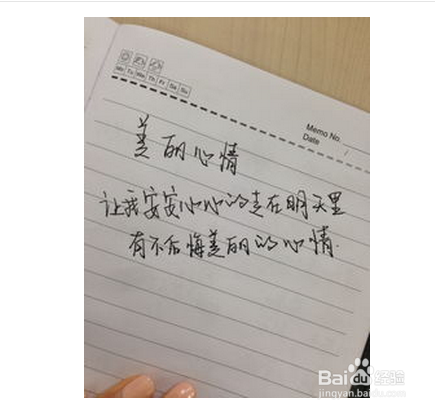 Mo Tu We Th Fr Sa Su
Memo No.
Date
美丽心情
让我安安心心的走在明天里
有不后悔美丽的心情.
Baidu经验
jingyan.baidu.com